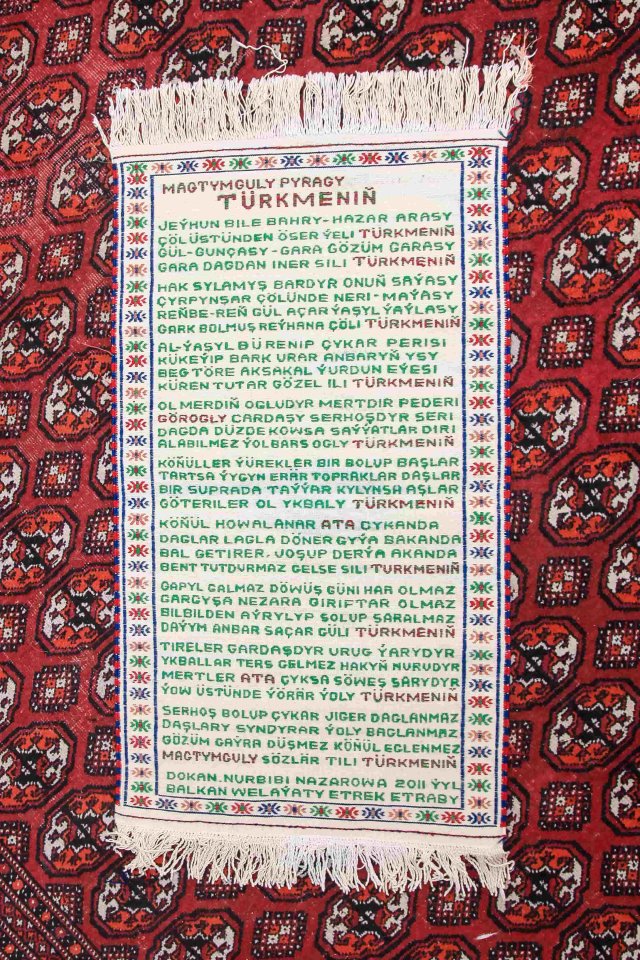 MAGTYMGULY PYRAGY
TÜRKMENIŇ
JEÝHUN BILE BAHRY-HAZAR ARASY
ÇÖL ÜSTÜNDEN ÖSER ÝELI TÜRKMENIŇ
GÜL-GUNÇASY-GARA GÖZÜM GARASY
GARA DAGDAN INER SILI TÜRKMENIŇ
HAK SYLAMYŞ BARDYR ONUŇ SAÝASY
ÇYRPYNŞAR ÇÖLÜNDE NERI-MAÝASY
REŇBE-REŇ GÜL AÇAR ÝAŞYL ÝAÝLASY
GARK BOLMUŞ REÝHANA ÇÖLI TÜRKMENIŇ
AL-ÝAŞYL BÜRENIP ÇYKAR PERISI
KÜKEÝIP BARK URAR ANBARYŇ YSY
BEG TÖRE AKSAKAL ÝURDUN EÝESI
KÜREN TUTAR GÖZEL ILI TÜRKMENIŇ
OL MERDIŇ OGLUDYR MERTDIR PEDERI
GÖROGLY GARDAŞY SERHOŞDYR SERI
DAGDA DÜZDE KOWSA SAÝÝATLAR DIRI
ALABILMEZ ÝOLBARS OGLY TÜRKMENIŇ
KÖŇÜLLER ÝÜREKLER BIR BOLUP BAŞLAR
TARTSA ÝYGYN ERÄR TOPRAKLAR DAŞLAR
BIR SUPRADA TAÝÝAR KYLYNSA AŞLAR
GÖTERILER OL YKBALY TÜRKMENIŇ
KÖŇÜL HOWALANAR ATA ÇYKANDA
DAGLAR LAGLA DÖNER GYÝA BAKANDA
BAL GETIRER JOŞUP DERÝA AKANDA
BENT TUTDURMAZ GELSE SILI TÜRKMENIŇ
GAPYL GALMAZ DÖWÜŞ GÜNI HAR OLMAZ
GARGYŞA NEZARA GIRIFTAR OLMAZ
BILBILDEN AÝRYLYP SOLUP SARALMAZ
DAÝYM ANBAR SAÇAR GÜLI TÜRKMENIŇ
TIRELER GARDAŞDYR URUG ÝARYDYR
YKBALLAR TERS GELMEZ HAKYŇ NURUDYR
MERTLER ATA ÇYKSA SÖWEŞ SARYDYR
ÝOW ÜSTÜNDE ÝÖRÄR ÝOLY TÜRKMENIŇ
SERHOŞ BOLUP ÇYKAR JIGER DAGLANMAZ
DAŞLARY SYNDYRAR ÝOLY BAGLANMAZ
GÖZÜM GAÝRA DÜŞMEZ KÖŇÜL EGLENMEZ
MAGTYMGULY SÖZLÄR TILI TÜRKMENIŇ
DOKAN. NURBIBI NAZAROWA 2011 ÝYL
BALKAN WELAÝATY ETREK ETRABY